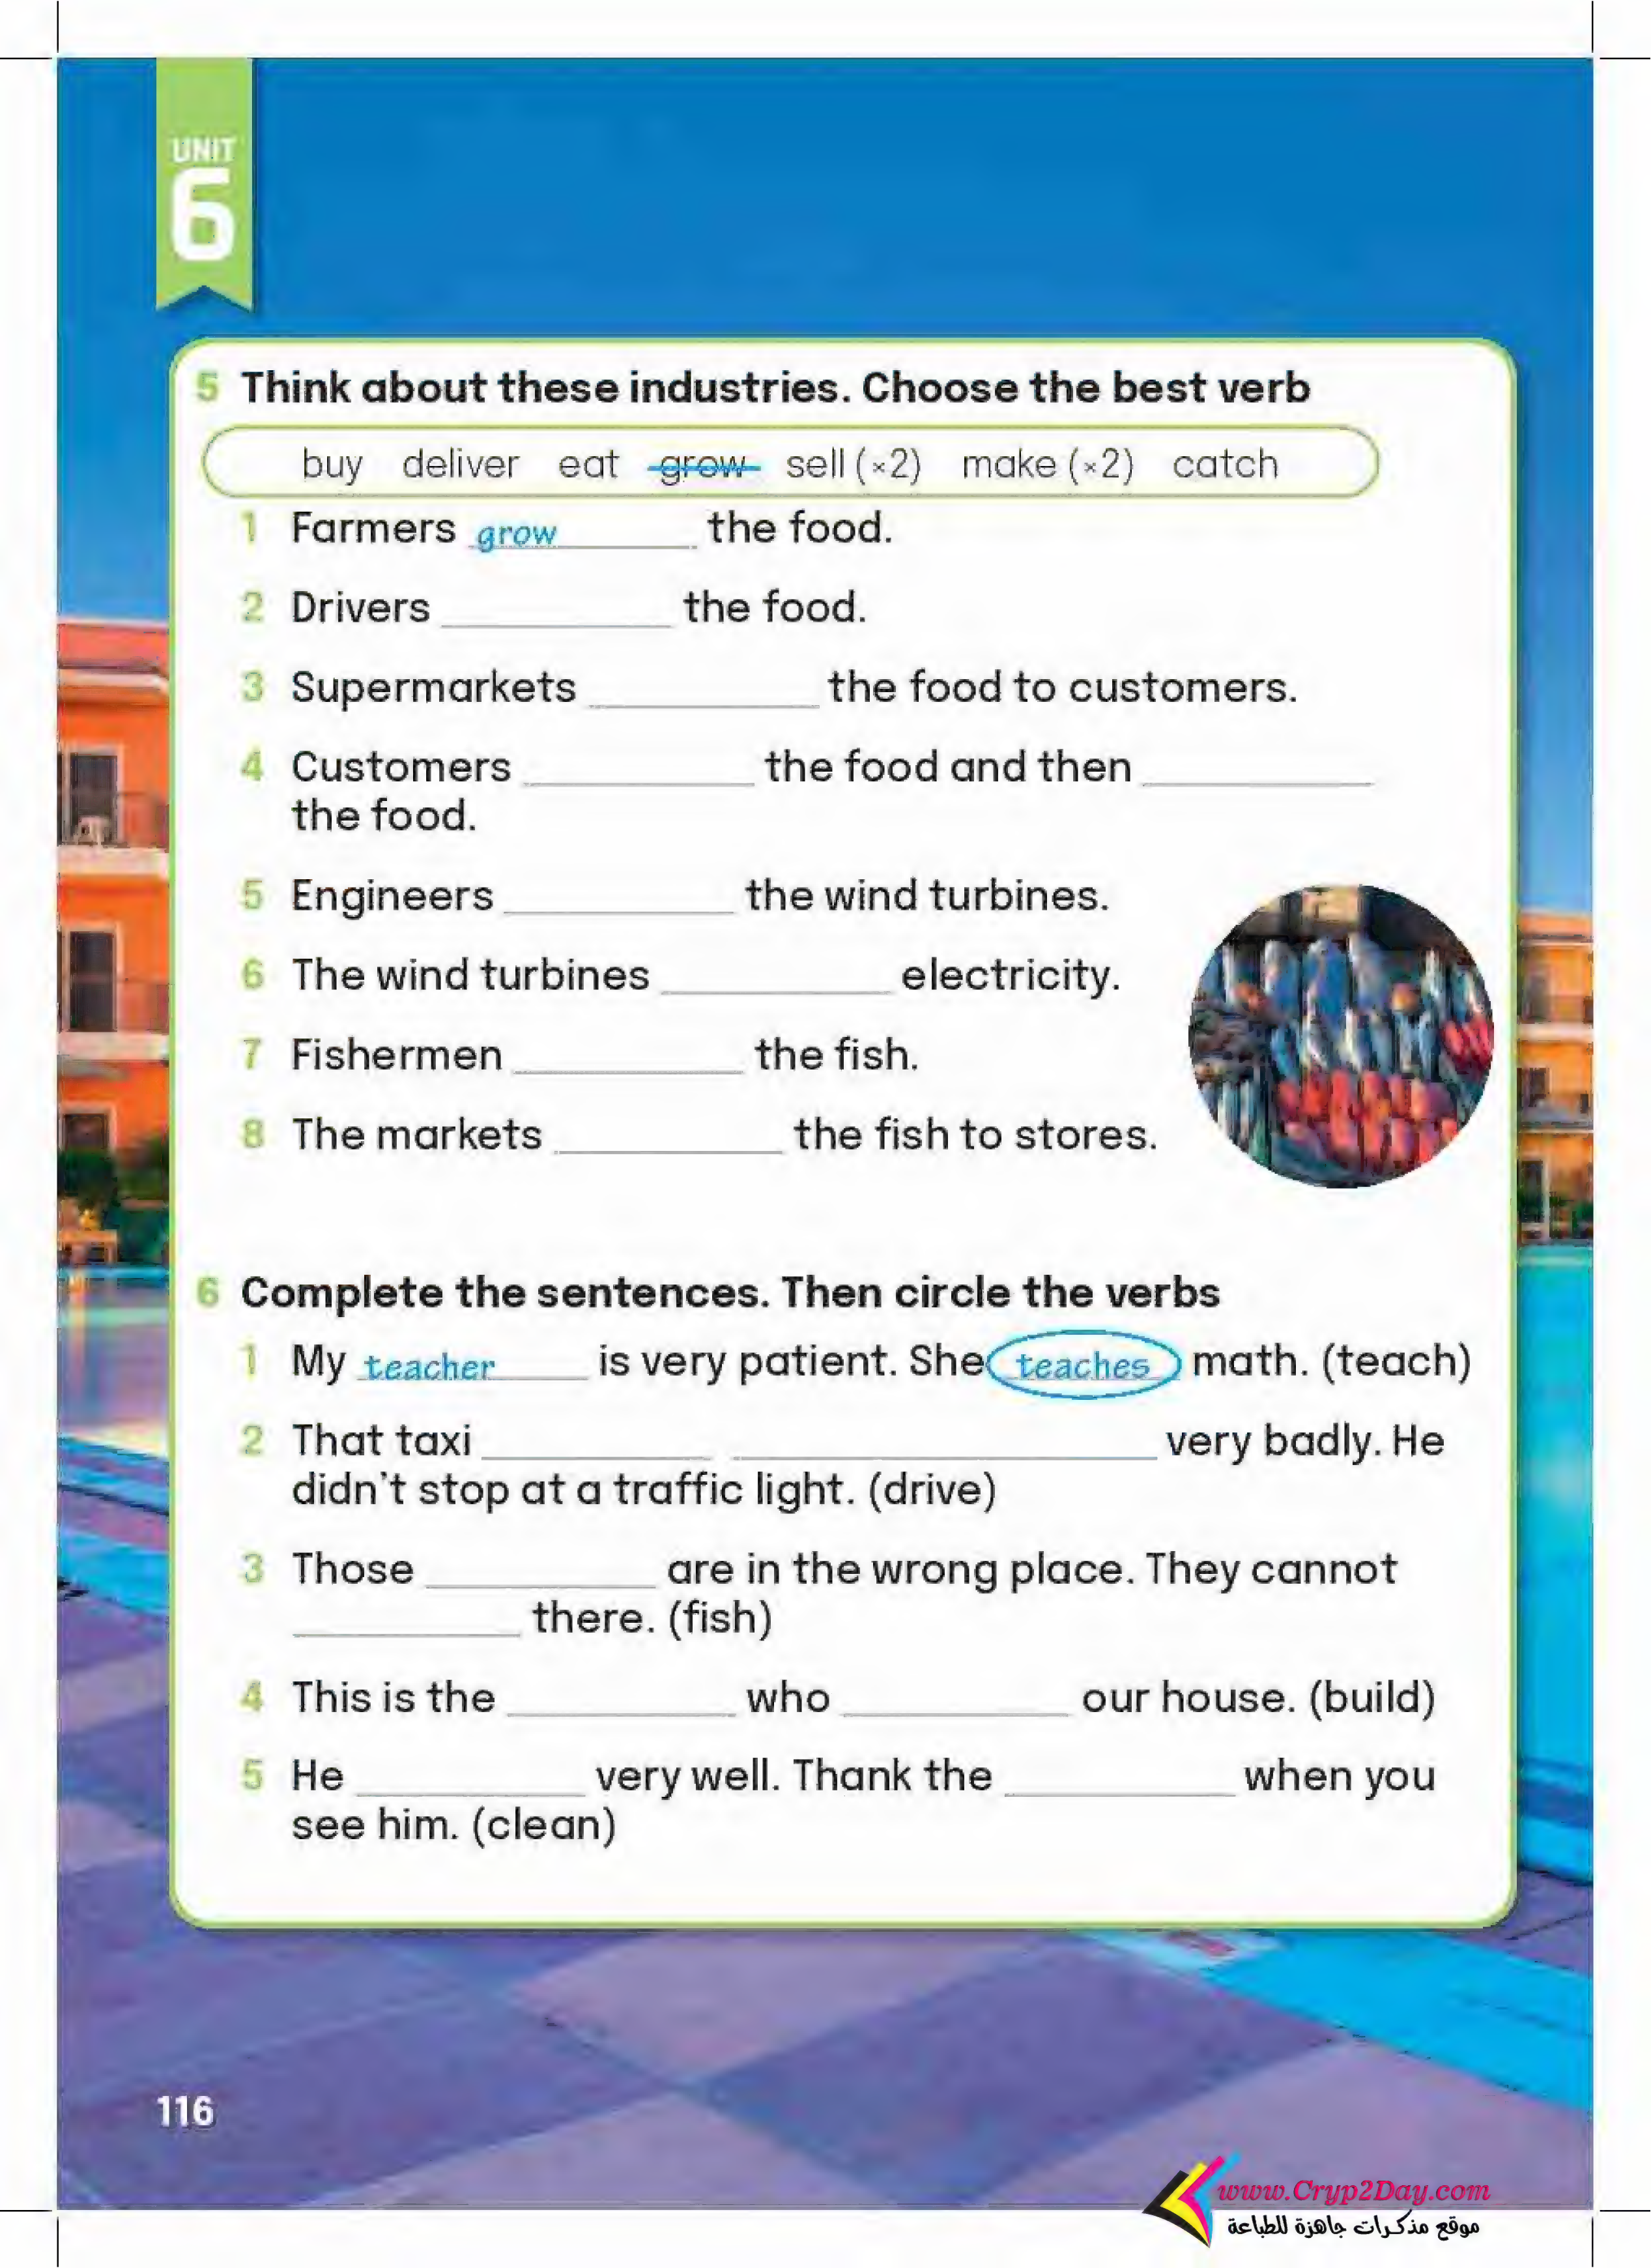 UNIT
6
5 Think about these industries. Choose the best verb
buy deliver eat grow sell (×2) make (×2) catch
1 Farmers grow the food.
2 Drivers ____________ the food.
3 Supermarkets ____________ the food to customers.
4 Customers ____________ the food and then ____________
the food.
5 Engineers ____________ the wind turbines.
6 The wind turbines ____________ electricity.
7 Fishermen ____________ the fish.
8 The markets ____________ the fish to stores.
6 Complete the sentences. Then circle the verbs
1 My teacher is very patient. She teaches math. (teach)
2 That taxi ____________ ______________________ very badly. He
didn't stop at a traffic light. (drive)
3 Those ____________ are in the wrong place. They cannot
____________ there. (fish)
4 This is the ____________ who ____________ our house. (build)
5 He ____________ very well. Thank the ____________ when you
see him. (clean)
116
www.Cryp2Day.com
موقع مذكرات جاهزة للطباعة